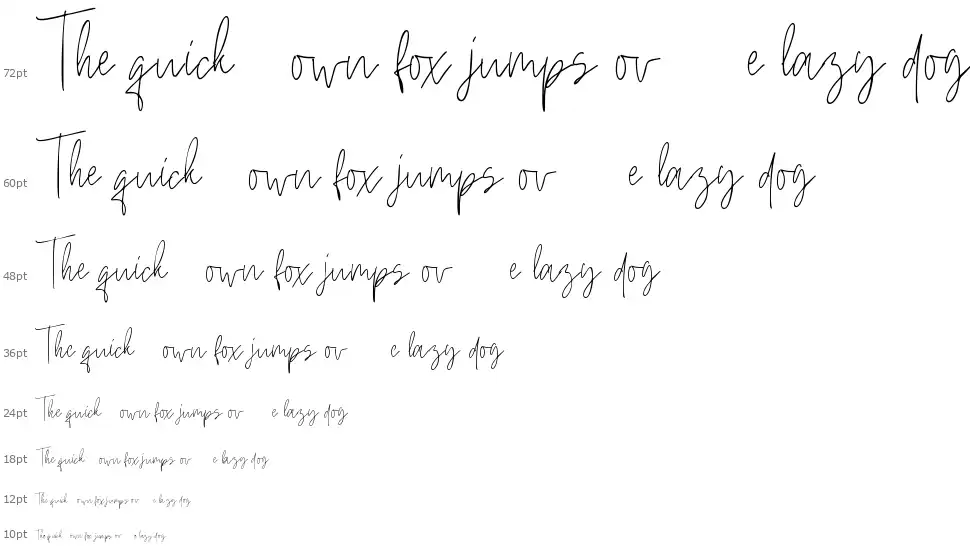 72pt The quick own fox jumps ov e lazy dog
60pt The quick own fox jumps ov e lazy dog
48pt The quick own fox jumps ov e lazy dog
36pt The quick own fox jumps ov e lazy dog
24pt The quick own fox jumps ov e lazy dog
18pt The quick own fox jumps ov e lazy dog
12pt The quick own fox jumps ov e lazy dog
10pt The quick own fox jumps ov e lazy dog